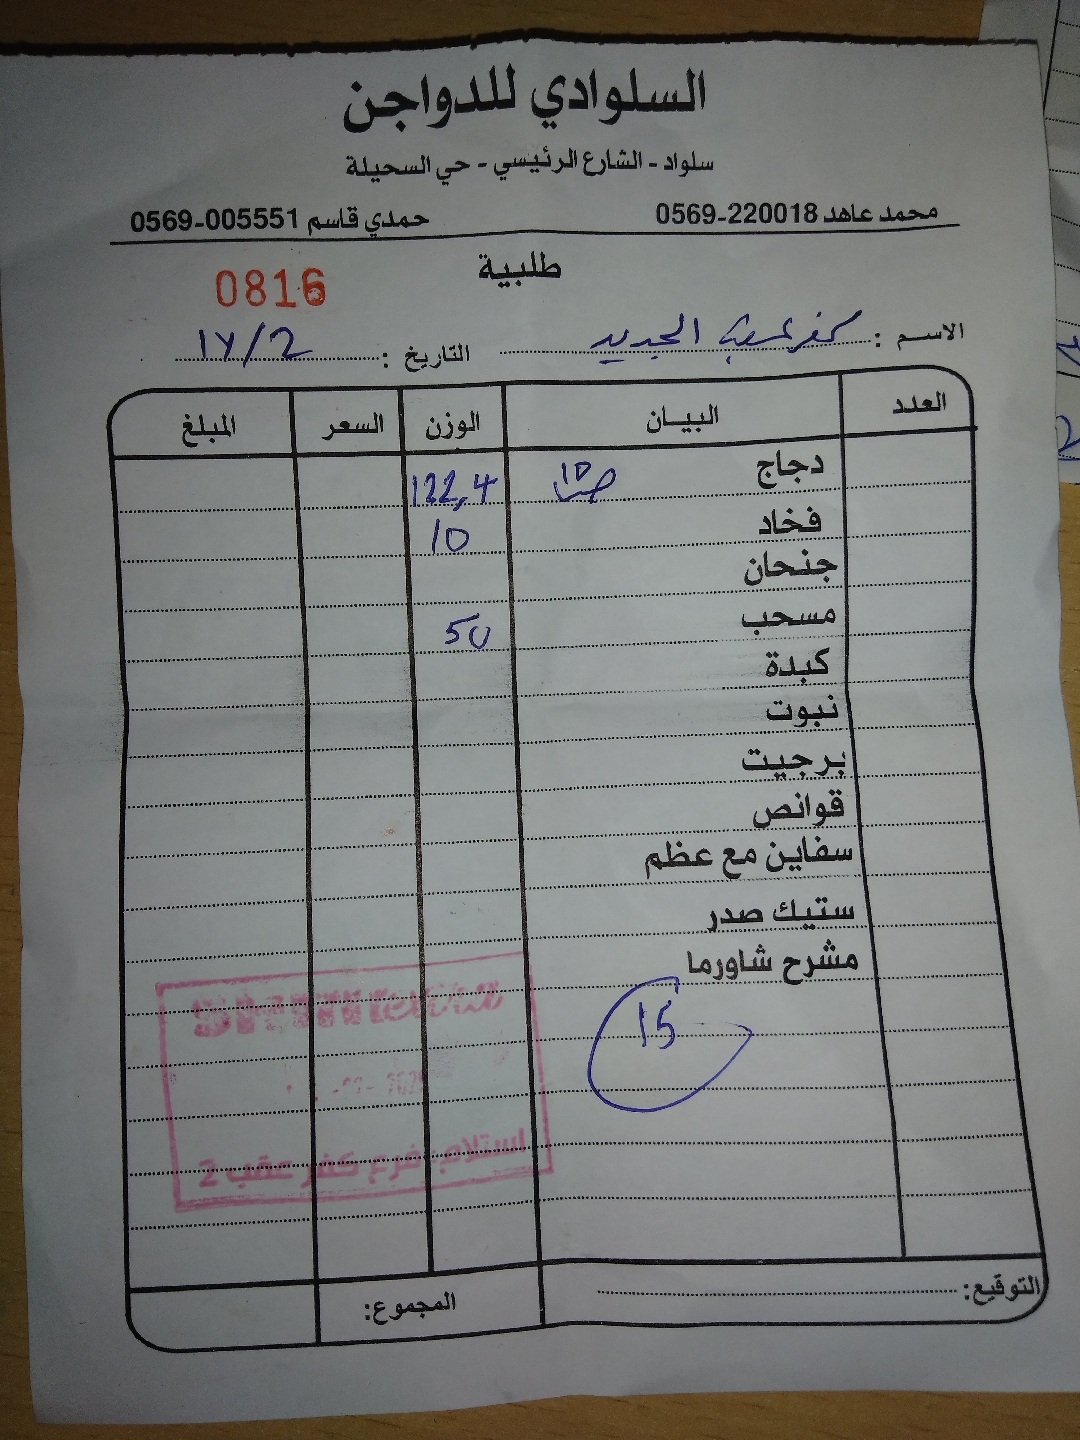 السلوادي للدواجن
سلواد - الشارع الرئيسي - حي السحيلة
محمد عاهد 0569-220018 حمدي قاسم 0569-005551
طلبية
0816
الاسم : كفر عقب الجديد التاريخ : 17/2
العدد البيـان الوزن السعر المبلغ
دجاج 122,4
فخاد 10
جنحان
مسحب 50
كبدة
نبوت
برجيت
قوانص
سفاين مع عظم
ستيك صدر
مشرح شاورما
15
استلام: فرع كفر عقب 2
التوقيع:
المجموع: